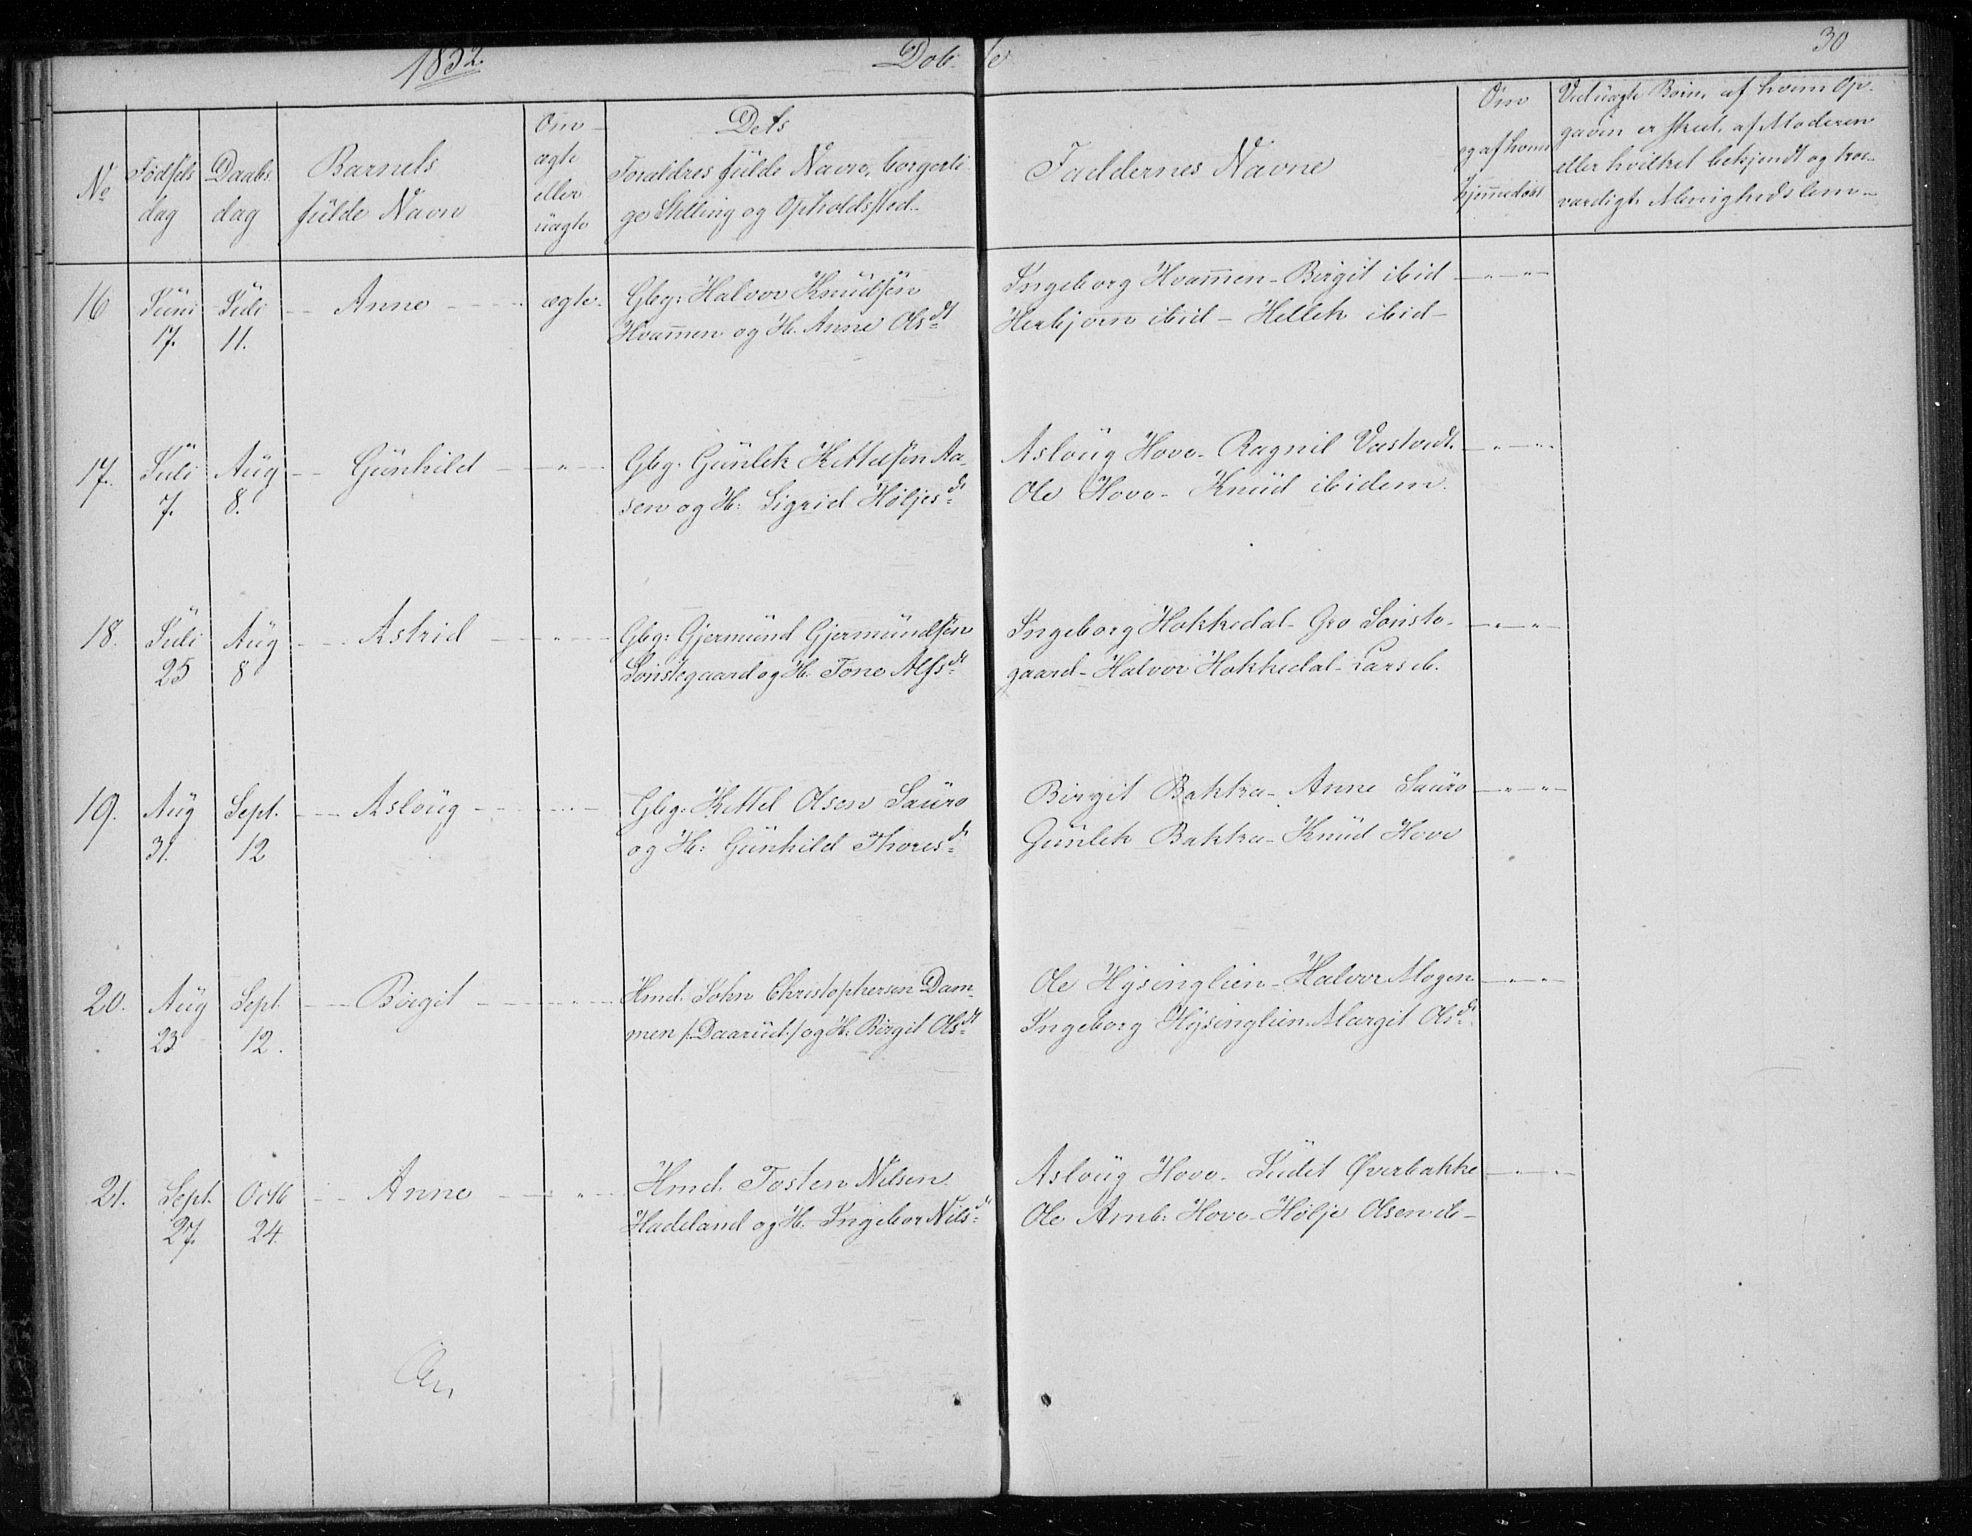 1852.
Døbte
30
No
Fødsels
dag
Daabs
dag
Barnets
fulde Navn
Om
ægte
eller
uægte
Dets
Forældres fulde Navne, borgerli-
ge Stilling og Opholdssted.
Faddernes Navne
Om
og af hvem
hjemmedøbt
Ved uægte Børn, af hvem Op-
gaven er skeet, af Moderen
eller hvilket bekjendt og tro-
værdigt Menighedslem
16 Juni 17. Juli 11. Anne ægte Gbg: Halvor Knudsen
Hvammen og H. Anne Olsdt
Ingeborg Hvammen - Birgit ibid -
Herbjørn ibid - Hellek ibid -
17. Juli 7. Aug 8. Gunhild " Gbg: Gunlek Kittelsen Aa-
sen og H: Sigrid Høljesdt
Asloug Hove - Ragnil Vastvedt.
Ole Hove - Knud ibidem.
18. Juli 25 Aug 8 Astrid " Gbg: Gjermund Gjermundsen
Sønstegaard og H. Tone Alfsdt
Ingeborg Hokkedal - Gro Sønste-
gaard - Halvor Hokkedal - Lars ib.
19. Aug 31. Sept. 12 Asloug " Gbg: Kittel Olsen Sauro
og H: Gunhild Thoresdt
Birgit Bakka - Anne Sauro
Gunlek Bakka - Knud Hove
20. Aug 23 Sept. 12. Birgit " Hmd. John Christophersen Dam-
men /: Daarud :/ og H. Birgit Olsdt
Ole Hysinglien - Halvor Mogen
Ingeborg Hysinglien Margit Olsdt
21. Sept. 27. Octb 24. Anne " Hmd. Tosten Nilsen
Hadeland og H. Ingebor Nilsdt
Asloug Hove - Judit Øverbakke
Ole Amb: Hove - Hølje Olsen ib -